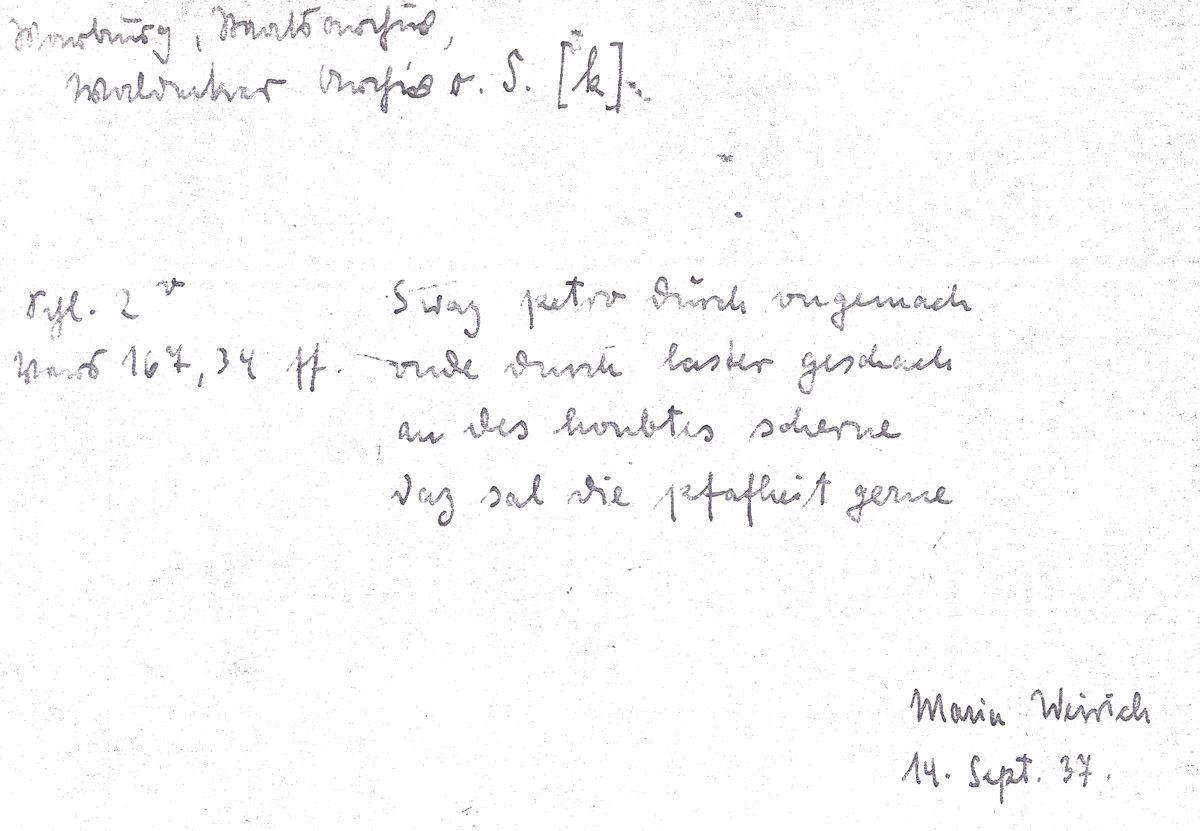 Marburg, Staatsarchiv,
Waldecker Archiv o. S. [k]
Vgl. 2 v
Vers 167,34 ff.
Swaz petro durch vngemach
vnde durch laster geschach
an des houbtes scherne
daz sal die pfafheit gerne
Maria Weirich
14. Sept. 37.